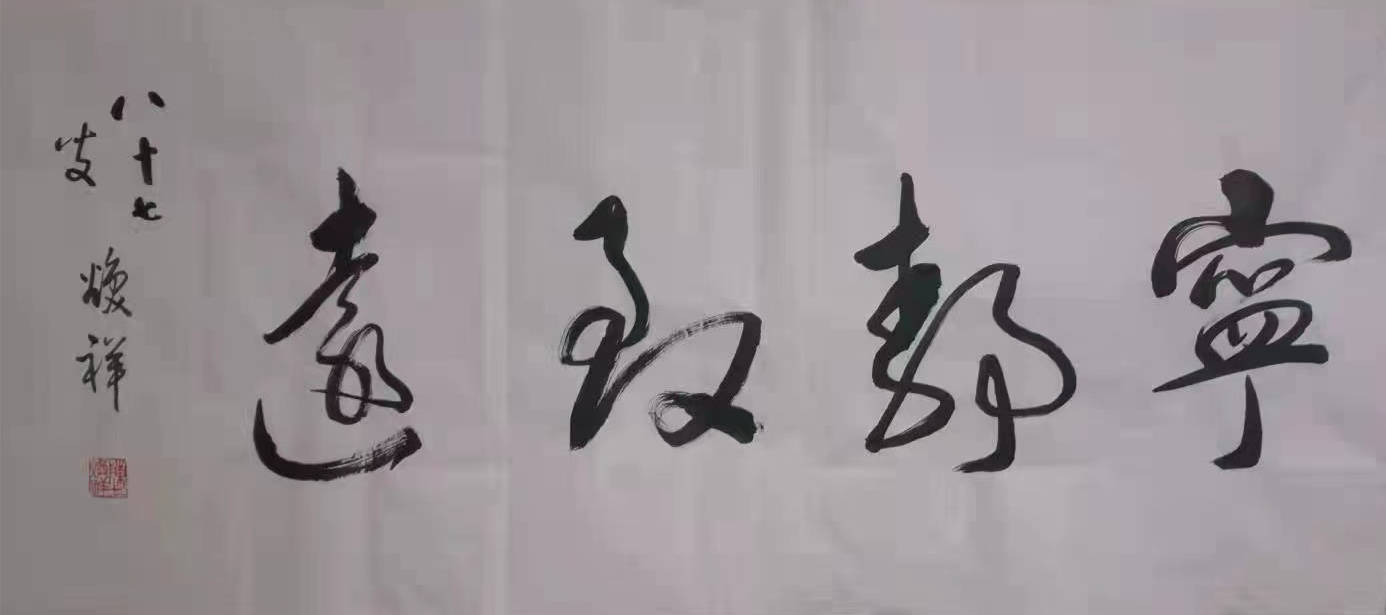 寧靜致遠
八十七
叟
煥祥